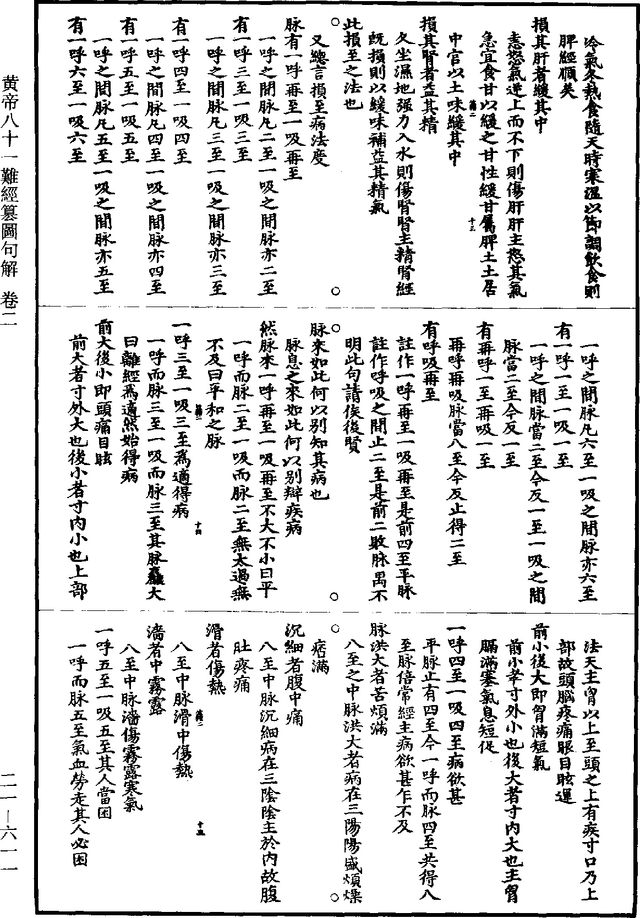 冷氣冬熱食隨天時寒溫以節調飲食則
脾經順矣
損其肝者緩其中
恚怒氣逆上而不下則傷肝肝主怒其氣
急宜食甘以緩之甘性緩甘屬脾土土居
中宮以土味緩其中
損其腎者益其精
久坐濕地强力入水則傷腎腎主精腎經
既損則以緩味補益其精氣
此損至之法也
又總言損至病法度
脉有一呼再至一吸再至
一呼之間脉凡二至一吸之間脉亦二至
有一呼三至一吸三至
一呼之間脉凡三至一吸之間脉亦三至
有一呼四至一吸四至
一呼之間脉凡四至一吸之間脉亦四至
有一呼五至一吸五至
一呼之間脉凡五至一吸之間脉亦五至
有一呼六至一吸六至
一呼之間脉凡六至一吸之間脉亦六至
有一呼一至一吸一至
一呼之間脉當二至今反一至一吸之間
脉當二至今反一至
有再呼一至再吸一至
再呼再吸脉當八至今反止得二至
有呼吸再至
註作一呼再至一吸再至是前四至平脉
註作呼吸之間止二至是前二敗脉曷不
明此句請俟後賢
脉來如此何以别知其病也
脉息之來如此何以别辯疾病
然脉來一呼再至一吸再至不大不小曰平
一呼而脉二至一吸而脉二至無太過無
不及曰平和之脉
一呼三至一吸三至爲適得病
一呼而脉三至一吸而脉三至其脉麤大
曰離經爲適然始得病
前大後小即頭痛目眩
前大者寸外大也後小者寸内小也上部
法天主胷以上至頭之上有疾寸口乃上
部故頭腦疼痛眼目眩運
前小後大即胷滿短氣
前小者寸外小也後大者寸内大也主胷
膈滿塞氣息短促
一呼四至一吸四至病欲甚
平脉止有四至今一呼而脉四至共得八
至脉倍常經主病欲甚乍不及
脉洪大者苦煩滿
八至之中脉洪大者病在三陽陽盛煩燥
痞滿
沉細者腹中痛
八至中脉沉細病在三陰陰主於内故腹
肚疼痛
滑者傷熱
八至中脉滑中傷熱
濇者中霧露
八至中脉濇傷霧露寒氣
一呼五至一吸五至其人當困
一呼而脉五至氣血勞走其人必困
黄帝八十一難經纂圖句解 卷二
二一—六一一